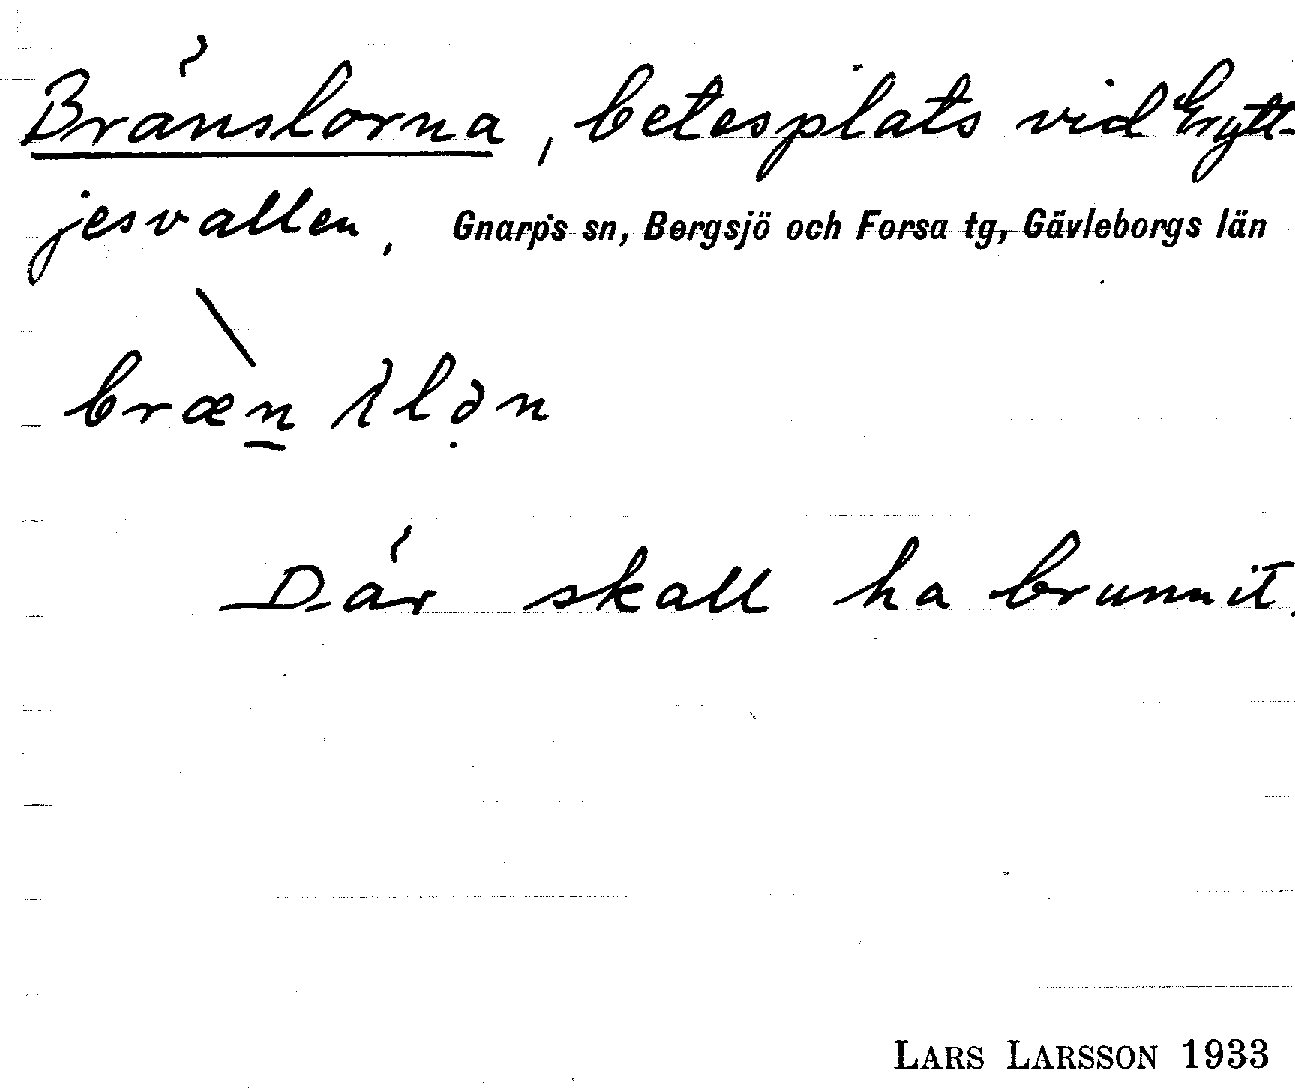 Bränslorna, betesplats vid Grytt-
jesvallen, Gnarp's sn, Bergsjö och Forsa tg, Gävleborgs län
Där skall ha brunnit.
LARS LARSSON 1933